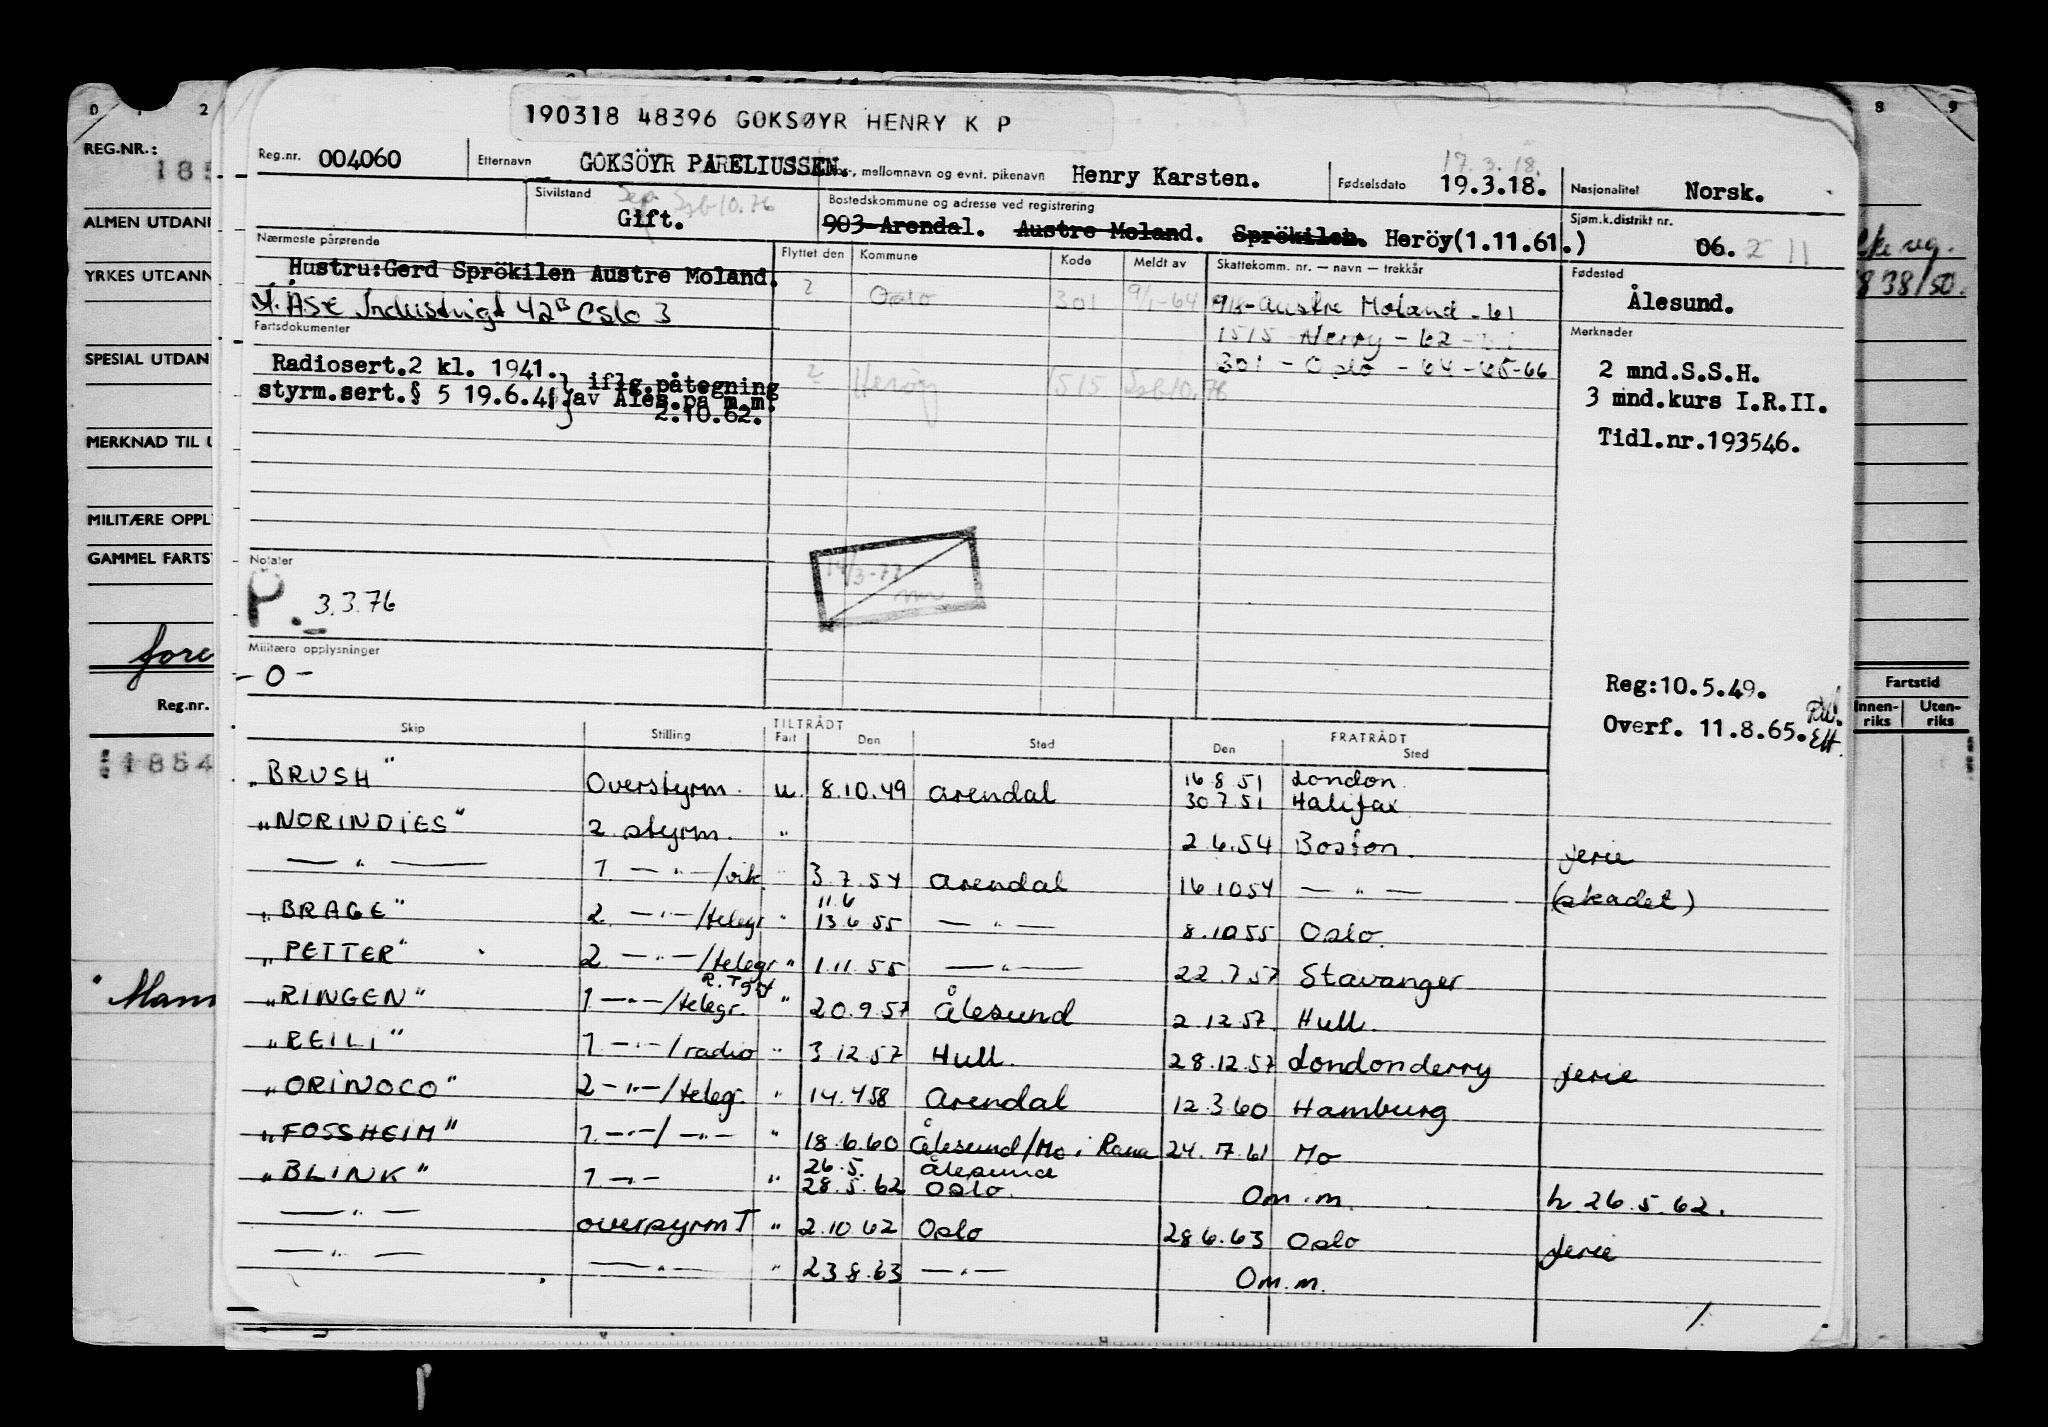 190318 48396 GOKSØYR HENRY K P
Reg.nr. 004060 Etternavn GOKSÖYR PARELIUSSEN. mellomnavn og evnt. pikenavn Henry Karsten. Fødselsdato 17.3.18. 19.3.18. Nasjonalitet Norsk.
Sivilstand Sep. Ssb 10.76 Gift.
Bostedskommune og adresse ved registrering
903 Arendal. Austre Moland. Sprökilen. Heröy(1.11.61.)
Sjøm.k.distrikt nr. 06. 2 11
Nærmeste pårørende
Hustru:Gerd Sprökilen Austre Moland.
Åse Industrigt 42B Oslo 3
Flyttet den Kommune Kode Meldt av Skattekomm. nr. — navn — trekkår
? Oslo 301 9/1-64 918- Austre Moland - 61
1515 Herøy - 62
301 - Oslo - 64 - 65-66
? Herøy 1515 Ssb 10.76
Fødested
Ålesund.
Fartsdokumenter
Radiosert.2 kl. 1941.
styrm.sert.§ 5 19.6.41 } iflg.påtegning
av Åles.på m.m.
2.10.62.
Merknader
2 mnd.S.S.H.
3 mnd.kurs I.R.II.
Tidl.nr.193546.
Notater
P. 3.3.76
14/3-77
Militære opplysninger
- 0 -
Reg:10.5.49.
Overf. 11.8.65.
Skip Stilling TILTRÅDT Fart Den Sted FRATRÅDT Den Sted
"BRUSH" Overstyrm. u. 8.10.49 Arendal 16.8.51 London
30 7.51 Halifax
"NORINDIES" 2. styrm. " 2.6.54 Boston. ferie
— " — 1. — " — /vik. " 3.7.54 Arendal 16.10 54 — " — (skadet)
"BRAGE" 2. — " — /telegr " 11.6 13.6 55 — " — 8.10 55 Oslo.
"PETTER" 2. — " — /telegr " 1.11.55 — " — 22.7.57 Stavanger
"RINGEN" 1. — " — /telegr. " 20.9.57 Ålesund 2.12.57 Hull.
"REILI" 1. — " — / radio " 3.12.57 Hull. 28.12.57 Londonderry ferie
"ORINOCO" 2 — " — /telegr. " 14.4 58 Arendal 12.3.60 Hamburg
"FOSSHEIM" 1. — " — / — " — " 18.6.60 Ålesund/Mo i Rana 24.7.61 Mo
"BLINK" 1. — " — " 26.5. Ålesund
28.5.62 Oslo. Om.m. h 26.5.62.
— " — overstyrm T " 2.10 62 Oslo 28 6.63 Oslo ferie
— " — — " — " 23 8.63 — " — Om.m.
0 1 2
REG.NR.:
185
ALMEN UTDANN
YRKES UTDANN
SPESIAL UTDAN
MERKNAD TIL U
MILITÆRE OPPL
GAMMEL FARTS
fore
Reg.nr.
1854
Mann
8 9
838/50.
Fartstid
Innen-riks Uten-riks